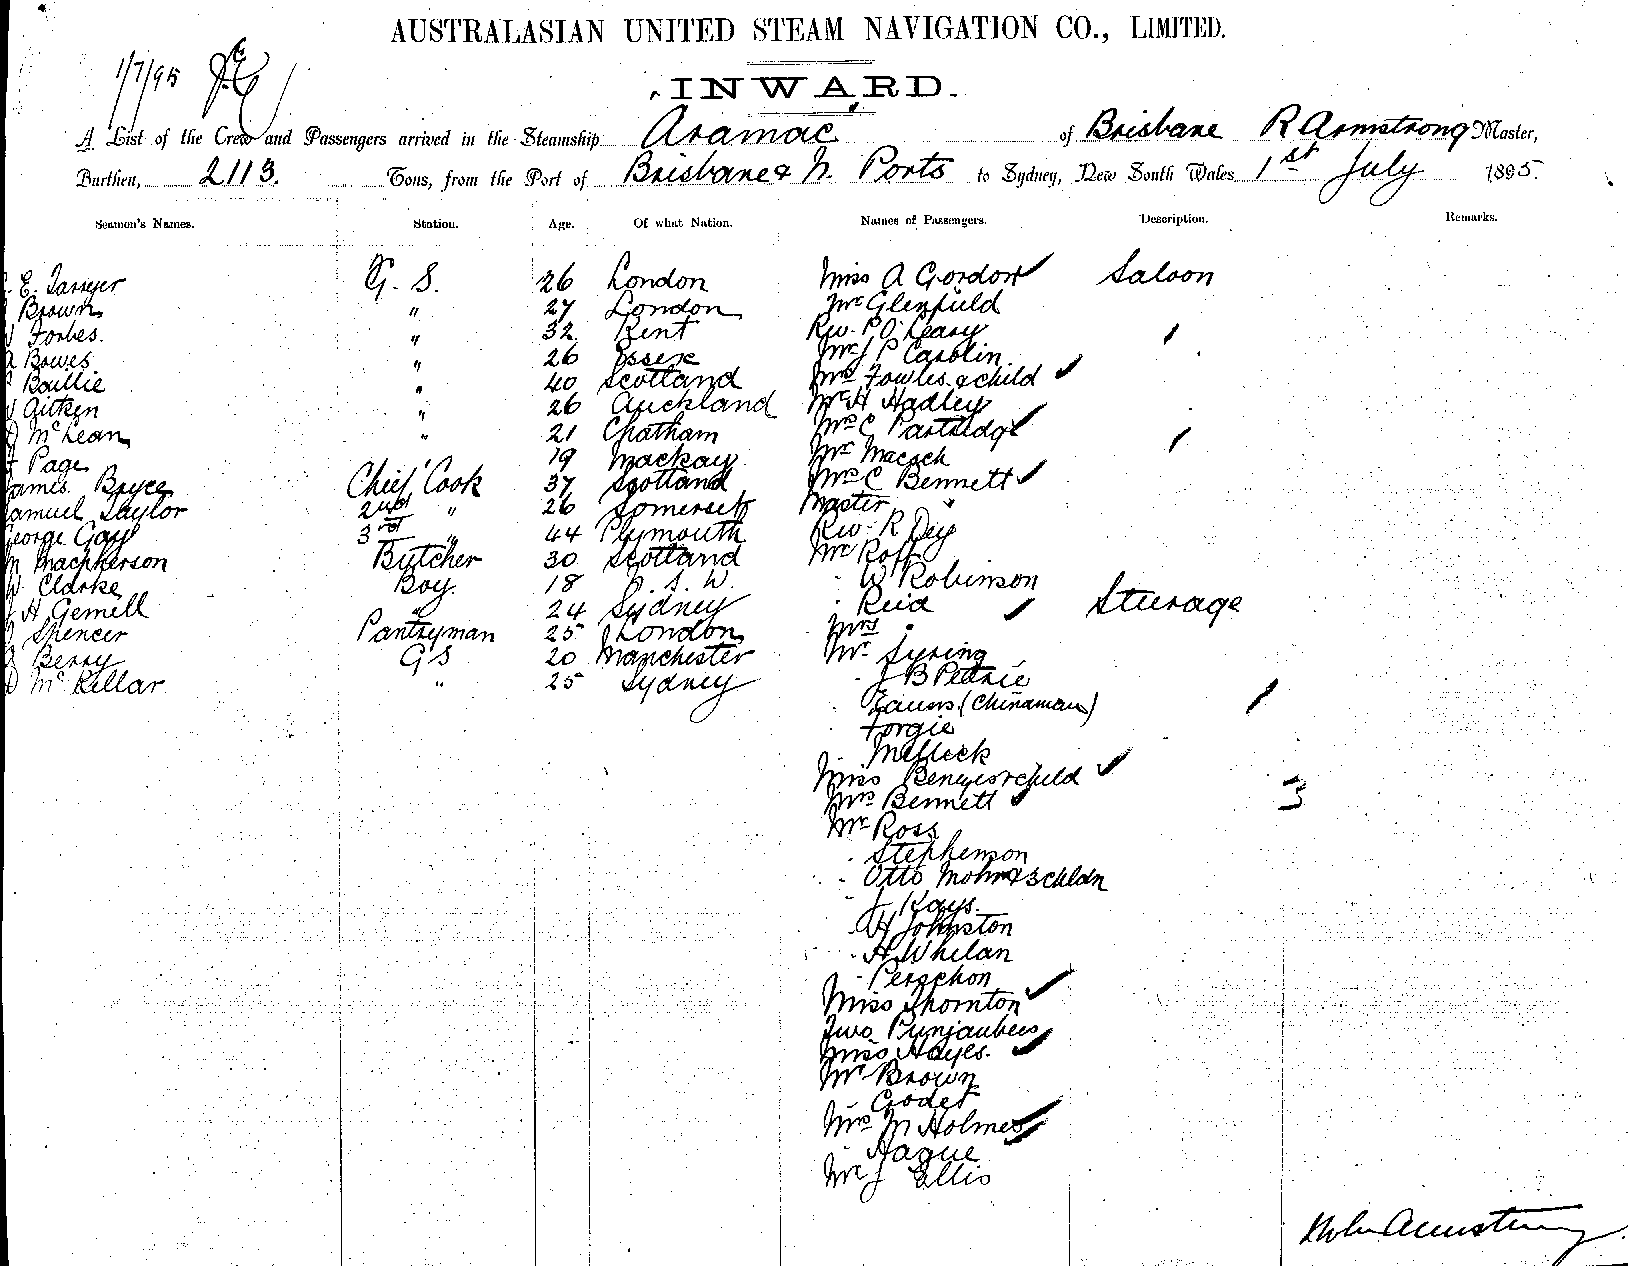 AUSTRALASIAN UNITED STEAM NAVIGATION CO., LIMITED.
1/7/95
INWARD.
A List of the Crew and Passengers arrived in the Steamship Aramac of Brisbane R Armstrong Master,
Burthen, 2113. Tons, from the Port of Brisbane & N. Ports to Sydney, New South Wales 1st July 1895.
Seamen's Names. Station. Age. Of what Nation. Names of Passengers. Description. Remarks.
E. G. S. 26 London Miss A Gordon Saloon
Brown " 27 London Mr Glenfield
Forbes. " 32 Kent Rev. P. O'Leary
Bowes. " 26 Essex Mr J P Carolin
Baillie " 40 Scotland Mrs Fowles & child
Aitken " 26 Auckland Mr H Hadley
McLean " 21 Chatham Mrs C Partridge
Page 19 Mackay Mr
James Bryce Chief Cook 37 Scotland Mrs C Bennett
Samuel Taylor 2nd " 26 Somerset Master "
George Gay 3rd " 44 Plymouth Rev. R Dey
Macpherson Butcher 30 Scotland Mr
W Clarke Boy. 18 N. S. W. " W Robinson
H Gemell " 24 Sydney " Reid Sturage
Spencer Pantryman 25 London Mrs "
Berry G S 20 Manchester Mr
McKellar " 25 Sydney " J B Petrie
(Chinaman)
" Forgie
"
Miss & child
Mrs Bennett 3
Mr Ross
" Stephenson
" Otto Mohr & 3 chldn
" J Kays.
" H Johnston
" H Whelan
"
Miss Thornton
Two Punjaubees
Miss Hayes.
Mr Brown
" Godet
Mrs M Holmes
" Hague
Mr J Ellis
Armstrong